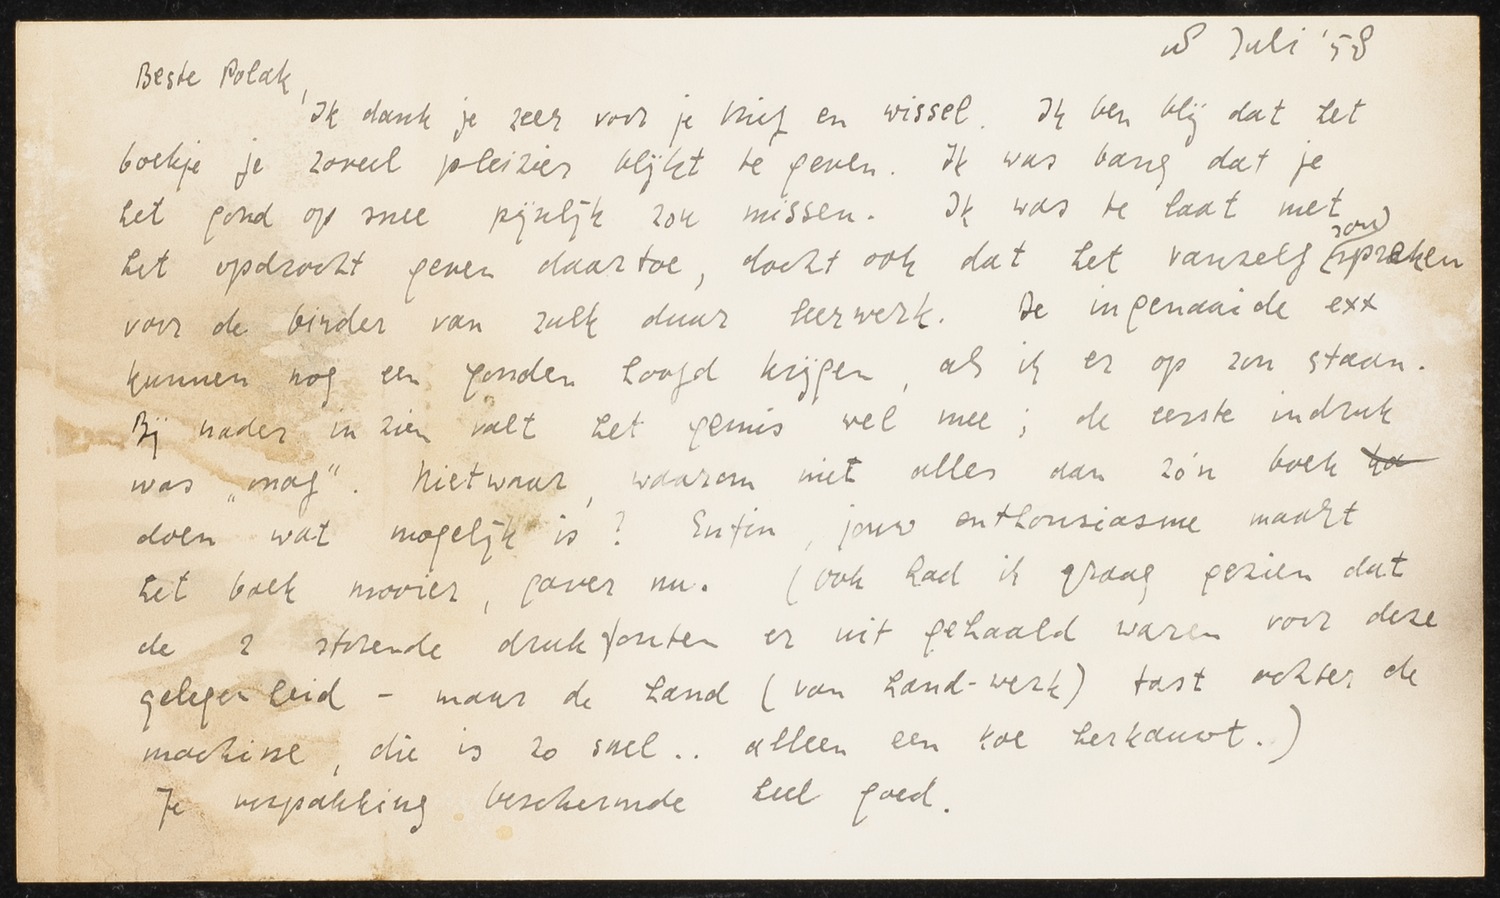 Juli '58
Beste Polak,
Ik dank je zeer voor je brief en wissel. Ik ben blij dat het
boekje je zoveel pleizier blijkt te geven. Ik was bang dat je
het goud op snee pijnlijk zou missen. Ik was te laat met
het opdracht geven daartoe, dacht ook dat het vanzelf zou spreken
voor de binder van zulk duur leerwerk. De ingenaaide exx
kunnen nog een gouden hoofd krijgen, als ik er op zou staan.
Bij nader in zien valt het gemis wel mee; de eerste indruk
was „onaf". Nietwaar, waarom niet alles aan zo'n boek
doen wat mogelijk is? Enfin, jouw enthousiasme maakt
het boek mooier, gaver nu. (Ook had ik graag gezien dat
de 2 storende drukfouten er uit gehaald waren voor deze
gelegenheid - maar de hand (van hand-werk) tast achter de
machine, die is zo snel.. alleen een koe herkauwt.)
Je verpakking beschermde heel goed.